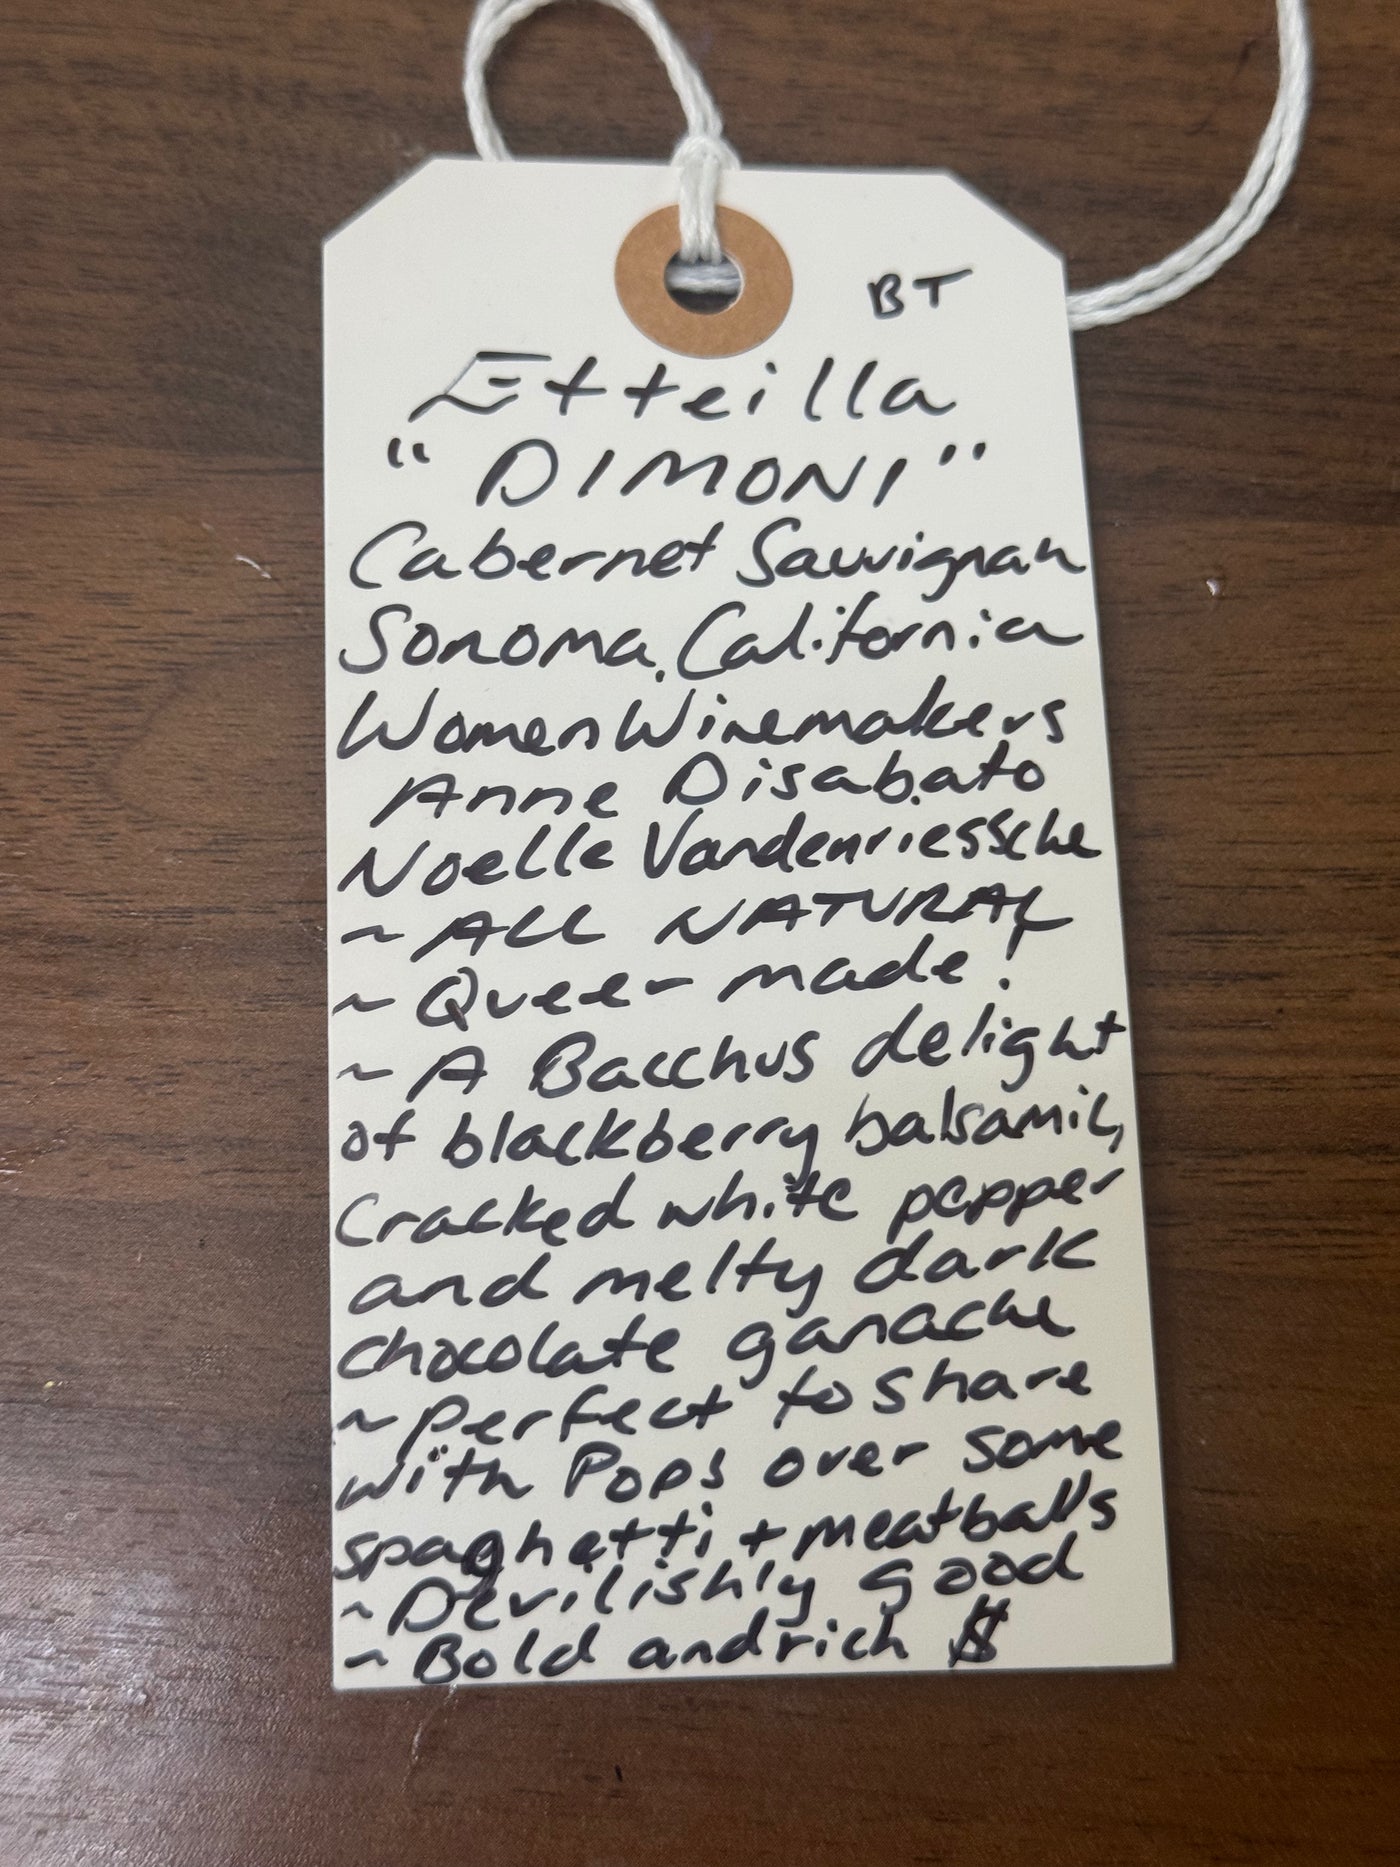 BT
Etteilla
"DIMONI"
Cabernet Sauvignan
Sonoma, California
Women Winemakers
Anne Disabato
Noelle Vandenriessche
~ ALL NATURAL
~ Queer-made!
~ A Bacchus delight
of blackberry balsamic,
cracked white pepper
and melty dark
chocolate ganache
~ Perfect to share
with Pops over some
spaghetti + meatballs
~ Devilishly good
~ Bold and rich $